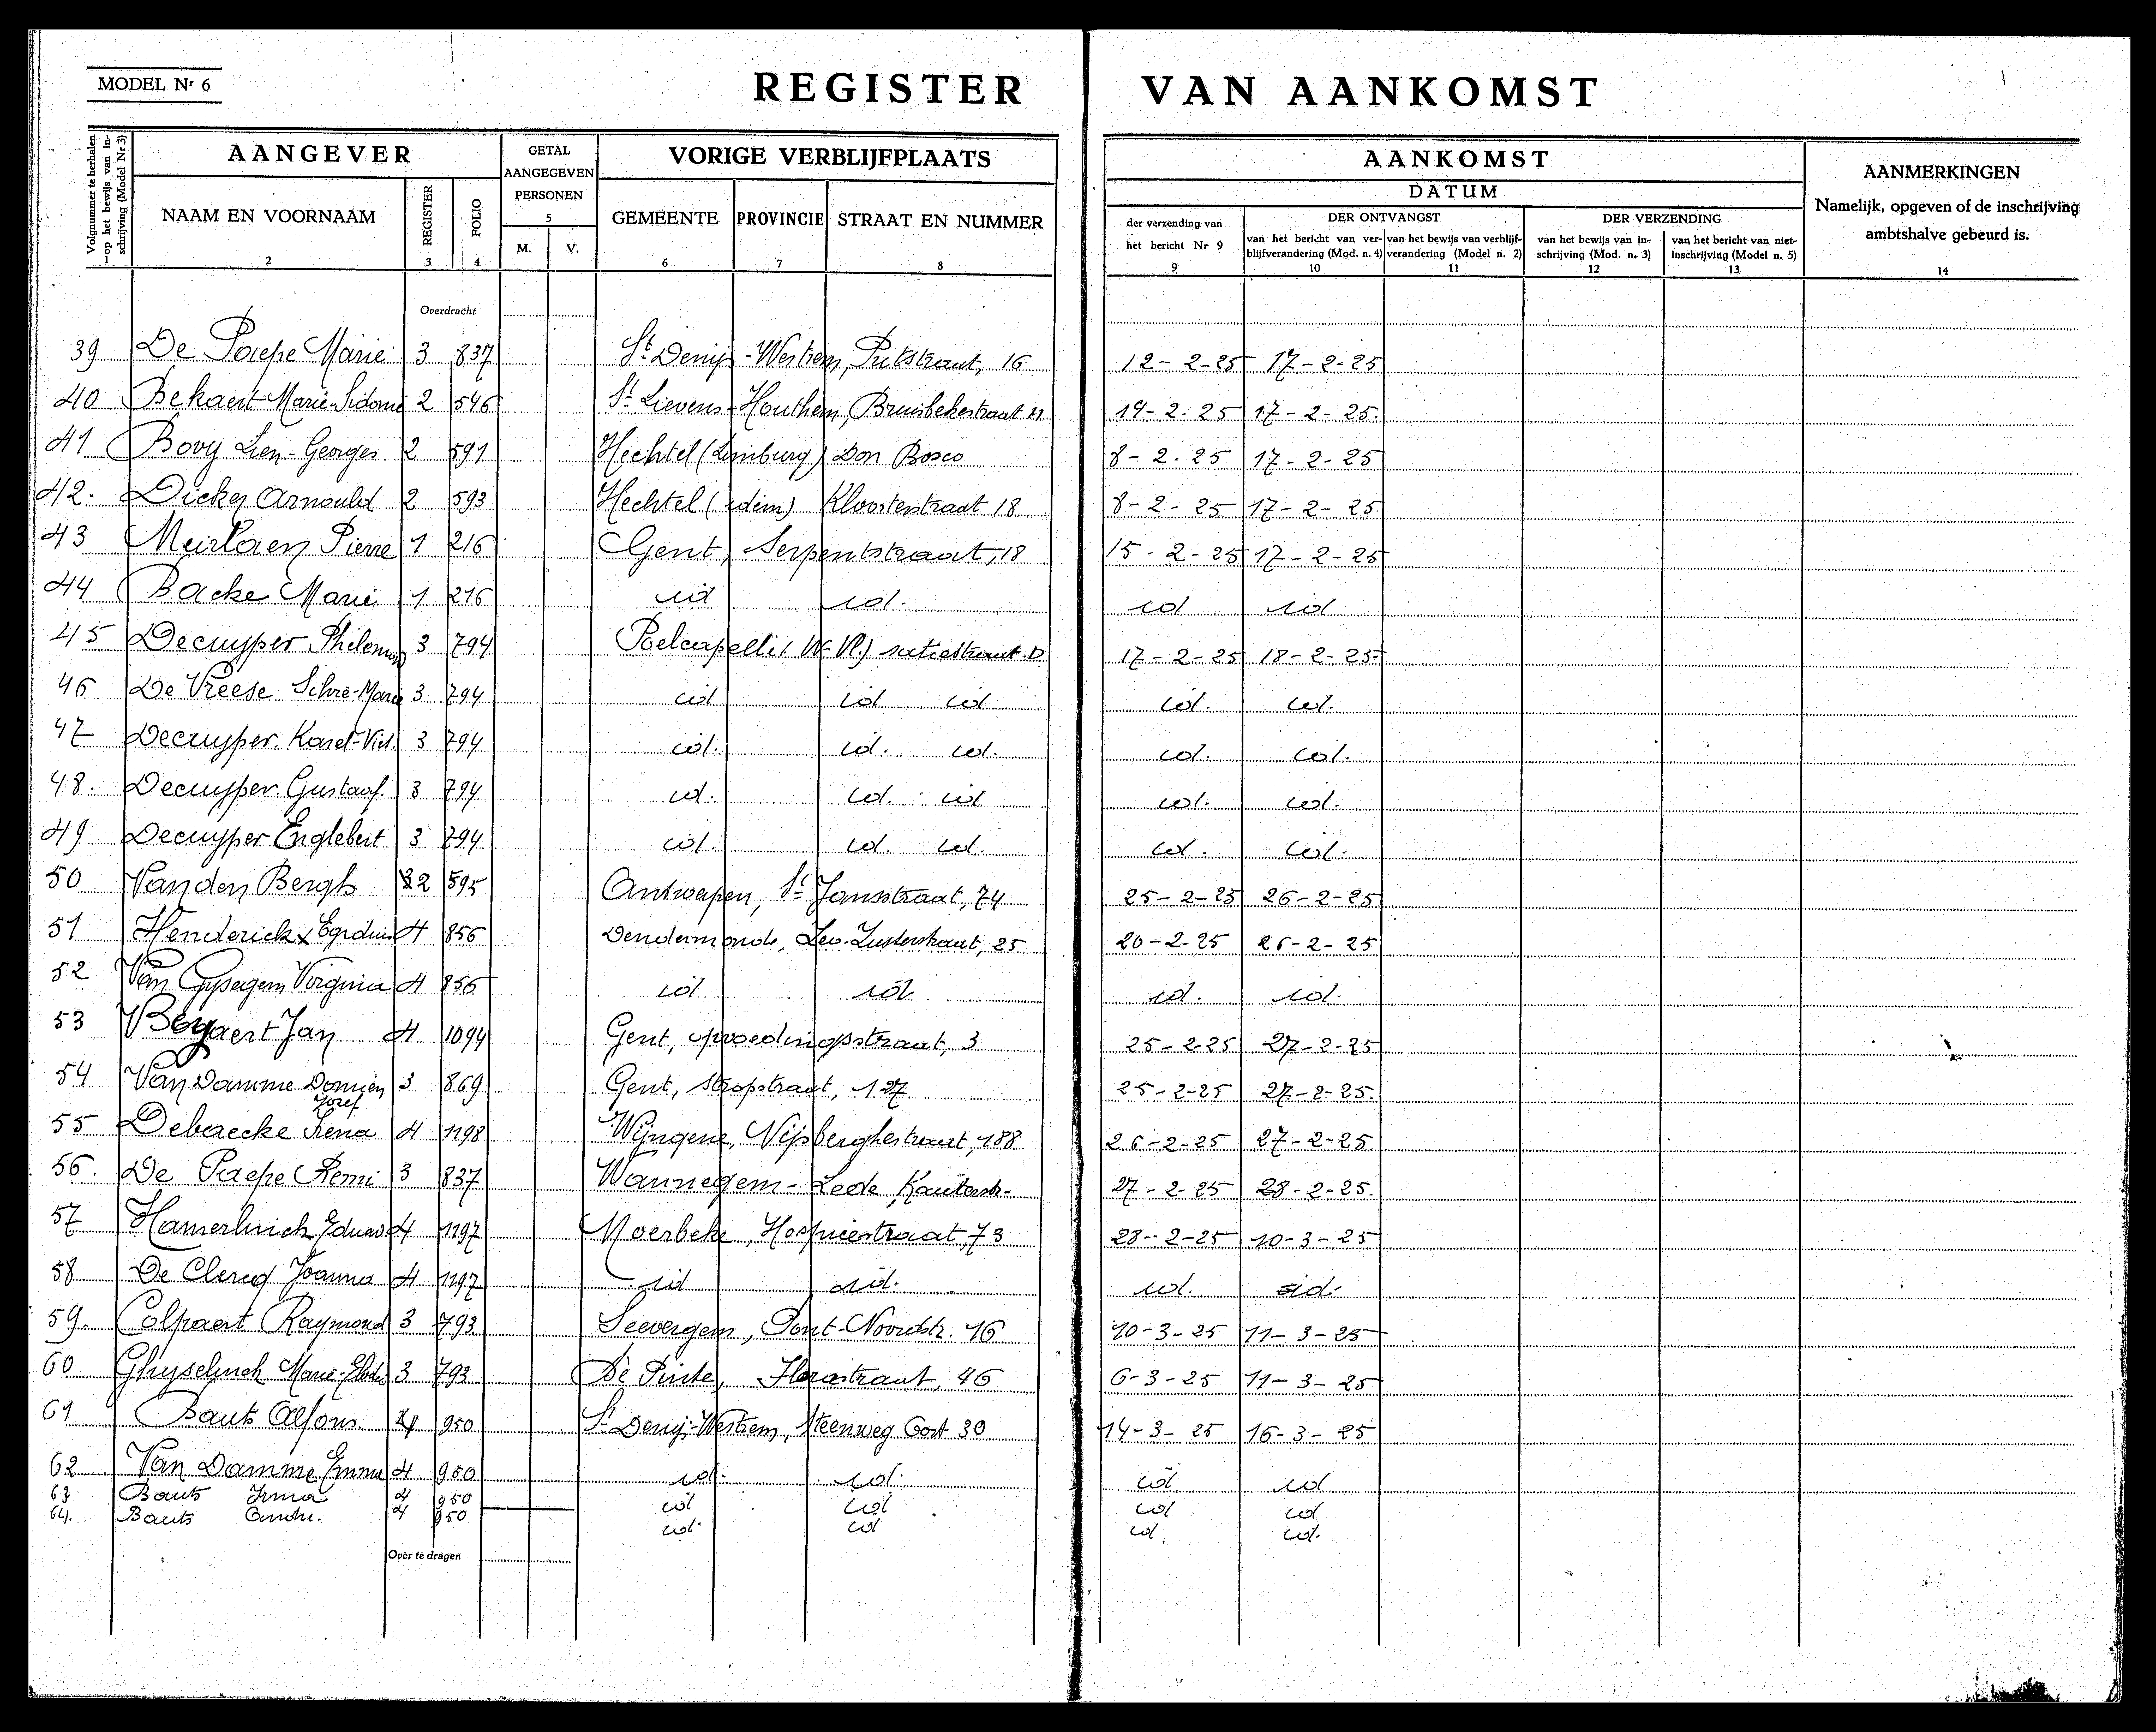 MODEL Nr 6
REGISTER VAN AANKOMST
Volgnummer te herhalen op het bewijs van inschrijving (Model Nr 3)
AANGEVER
GETAL AANGEGEVEN PERSONEN
VORIGE VERBLIJFPLAATS
AANKOMST
AANMERKINGEN
Namelijk, opgeven of de inschrijving ambtshalve gebeurd is.
DATUM
NAAM EN VOORNAAM
REGISTER
FOLIO
M. V.
GEMEENTE PROVINCIE STRAAT EN NUMMER
der verzending van het bericht Nr 9
DER ONTVANGST
van het bericht van verblijfverandering (Mod. n. 4)
van het bewijs van verblijfverandering (Model n. 2)
DER VERZENDING
van het bewijs van inschrijving (Mod. n. 3)
van het bericht van niet-inschrijving (Model n. 5)
1 2 3 4 5 6 7 8 9 10 11 12 13 14
Overdracht
39 De Paepe Marie 3 837 St Denijs-Westrem, Putstraat, 16 12-2-25 17-2-25
40 Bekaert Marie-Sidonie 2 546 St Lievens-Houthem, Bruisbekestraat 21 14-2-25 17-2-25
41 Bovy Lien-Georges 2 591 Hechtel (Limburg) Don Bosco 8-2-25 17-2-25
42. Dickes Arnould 2 593 Hechtel (idem) Kloosterstraat 18 8-2-25 17-2-25
43 Meirlaen Pierre 1 216 Gent, Serpentstraat, 18 15-2-25 17-2-25
44 Backe Marie 1 216 id id. id id
45 Decuyper Philemon 3 794 Poelcapelle (W-Vl.) 17-2-25 18-2-25
46 De Vreese Marie 3 794 id id id id. id.
47 Decuyper Karel-Vict. 3 794 id. id. id. id. id.
48. Decuyper Gustaaf 3 794 id. id. id id. id.
49 Decuyper Englebert 3 794 id. id. id. id. id.
50 Vanden Bergh 2 595 Antwerpen, St Jansstraat, 74 25-2-25 26-2-25
51 Henderickx Egidius 4 856 Dendermonde, Zusterstraat, 25 20-2-25 26-2-25
52 Van Gysegem Virginia 4 856 id. id. id. id.
53 Beyaert Jan 4 1094 Gent, opvoedingsstraat, 3 25-2-25 27-2-25
54 Van Damme Domien Jozef 3 869 Gent, Stropstraat, 127 25-2-25 27-2-25
55 Debaecke Irena 4 1198 Wijngene, Nijsberghestraat, 188 26-2-25 27-2-25
56. De Paepe Remi 3 837 Wannegem-Lede, Kauterstr. 27-2-25 28-2-25
57 Hamerlinck Eduard 4 1197 Moerbeke, Hospiestraat, 73 28-2-25 10-3-25
58 De Clercq Joanna 4 1197 id id. id. id.
59. Colpaert Raymond 3 793 Seevergem, Pont-Noordstr. 16 10-3-25 11-3-25
60 Ghyselinck Marie-Elodie 3 793 De Pinte, Florastraat, 46 6-3-25 11-3-25
61 Bauts Alfons 4 950 St Denijs-Westrem, Steenweg Oost 30 14-3-25 16-3-25
62 Van Damme Emma 4 950 id. id. id id
63 Bauts Irma 4 950 id id id id
64. Bauts Andre. 4 950 id. id id id.
Over te dragen